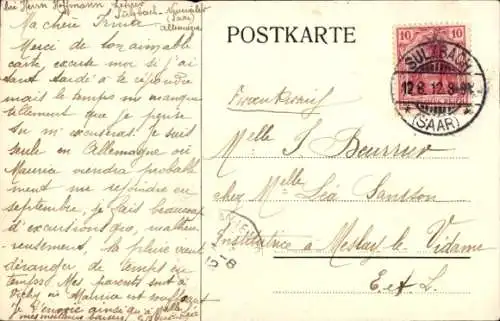 bei Herrn Hoffmann, Lehrer
Sulzbach
(Saar)
Allemagne
Ma chère Irma
Merci de ton aimable
carte, excuse moi si j'ai
tant tardé à te répondre
mais le temps me manque
tellement que je pense
tu m'excuseras. Je suis
seule en Allemagne où
Maurice viendra probable
ment me rejoindre en
septembre, je fais beaucoup
d'excursions que, malheu-
reusement, la pluie vient
déranger de temps en
temps. Mes parents sont à
Vichy où Maurice est
Je t'envoie ainsi qu'à Melle
mes meilleurs baisers
POSTKARTE
10 10
SULZBACH
12.8.12.8-9V.
* (SAAR) *
Melle I Beurrier
chez Melle Léa Sansson
Institutrice à Meslay-le-Vidame
E et L.